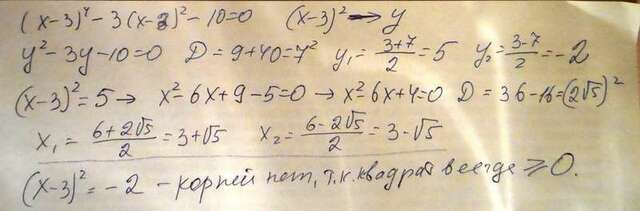 (x-3)⁴-3(x-3)²-10=0 (x-3)²→y
y²-3y-10=0 D=9+40=7² y₁=(3+7)/2=5 y₂=(3-7)/2=-2
(x-3)²=5→ x²-6x+9-5=0 → x²-6x+4=0 D=36-16=(2√5)²
x₁=(6+2√5)/2=3+√5 x₂=(6-2√5)/2=3-√5
(x-3)²=-2 - корней нет, т.к. квадрат всегда ≥0.